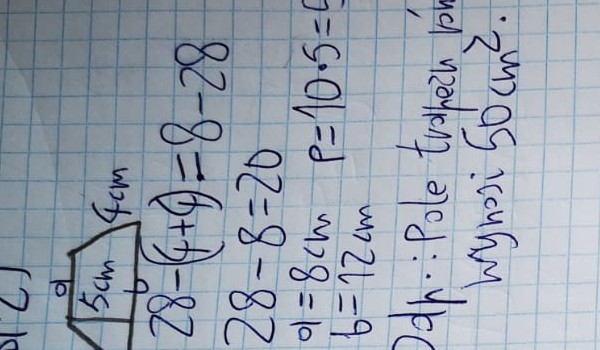 a
5cm
4cm
b
28-(4+4)=8-28
28-8=20
a=8cm
b=12cm P=10·5=
Odp.: Pole trapezu
wynosi 50cm².